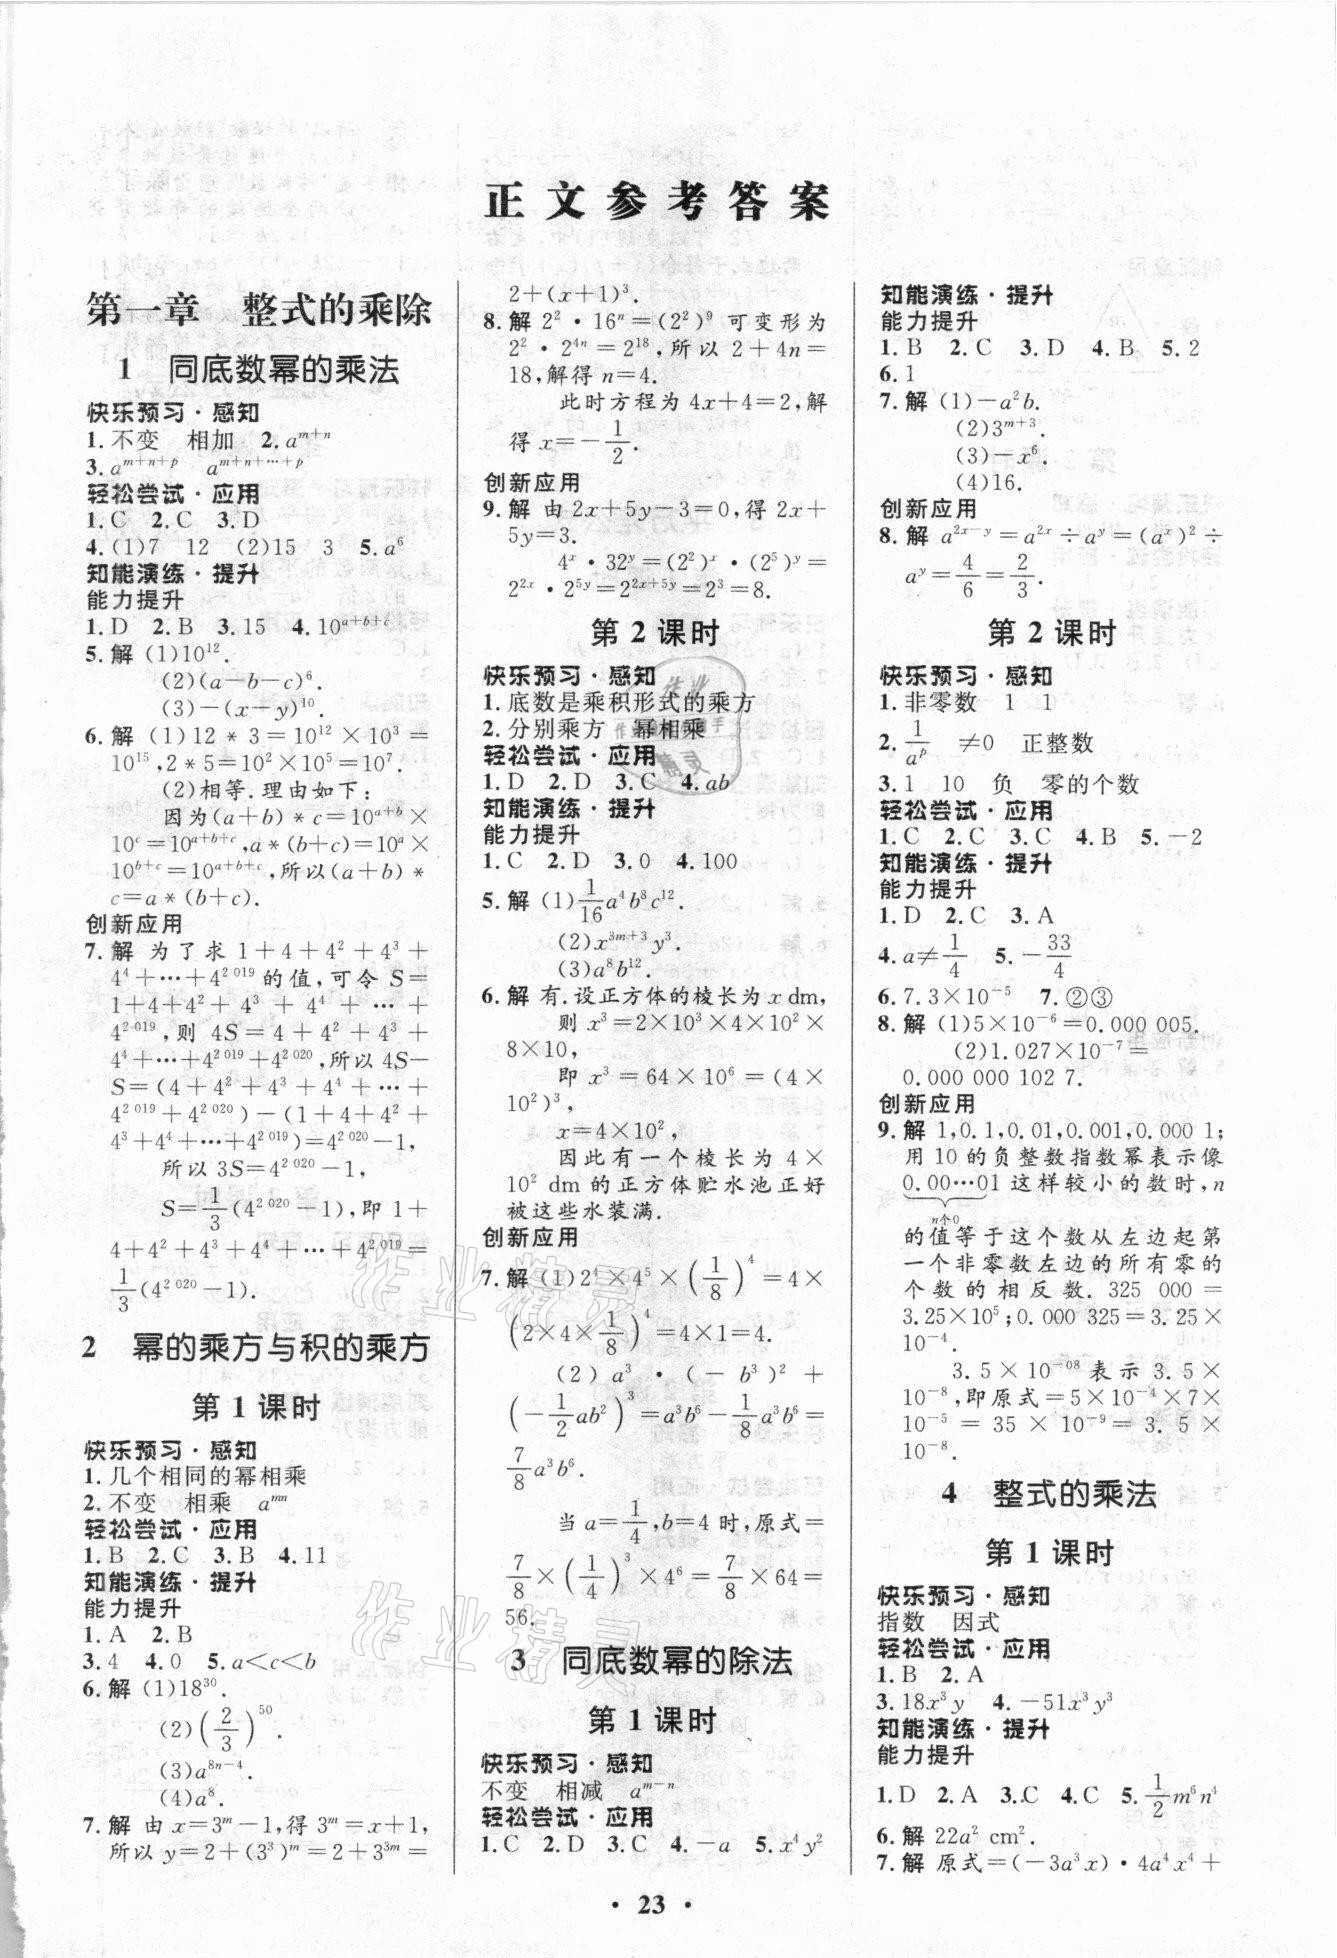 正文参考答案
第一章 整式的乘除
1 同底数幂的乘法
快乐预习·感知
1.不变 相加 2.a^{m+n}
3.a^{m+n+p} a^{m+n+…+p}
轻松尝试·应用
1.C 2.C 3.D
4.(1)7 12 (2)15 3 5.a⁶
知能演练·提升
能力提升
1.D 2.B 3.15 4.10^{a+b+c}
5.解 (1)10¹².
(2)(a-b-c)⁶.
(3)-(x-y)¹⁰.
6.解 (1)12*3=10¹²×10³=
10¹⁵,2*5=10²×10⁵=10⁷.
(2)相等.理由如下:
因为(a+b)*c=10^{a+b}×
10^c=10^{a+b+c},a*(b+c)=10^a×
10^{b+c}=10^{a+b+c},所以(a+b)*
c=a*(b+c).
创新应用
7.解 为了求1+4+4²+4³+
4⁴+…+4^{2 019}的值,可令S=
1+4+4²+4³+4⁴+…+
4^{2 019},则4S=4+4²+4³+
4⁴+…+4^{2 019}+4^{2 020},所以4S-
S=(4+4²+4³+4⁴+…+
4^{2 019}+4^{2 020})-(1+4+4²+
4³+4⁴+…+4^{2 019})=4^{2 020}-1,
所以3S=4^{2 020}-1,
S=1/3(4^{2 020}-1),即1+
4+4²+4³+4⁴+…+4^{2 019}=
1/3(4^{2 020}-1).
2 幂的乘方与积的乘方
第1课时
快乐预习·感知
1.几个相同的幂相乘
2.不变 相乘 a^{mn}
轻松尝试·应用
1.B 2.C 3.B 4.11
知能演练·提升
能力提升
1.A 2.B
3.4 4.0 5.a<c<b
6.解 (1)18³⁰.
(2)(2/3)⁵⁰.
(3)a^{8n-4}.
(4)a⁸.
7.解 由x=3^m-1,得3^m=x+1,
所以y=2+(3³)^m=2+3^{3m}=
2+(x+1)³.
8.解 2²·16^n=(2²)⁹可变形为
2²·2^{4n}=2¹⁸,所以2+4n=
18,解得n=4.
此时方程为4x+4=2,解
得x=-1/2.
创新应用
9.解 由2x+5y-3=0,得2x+
5y=3.
4^x·32^y=(2²)^x·(2⁵)^y=
2^{2x}·2^{5y}=2^{2x+5y}=2³=8.
第2课时
快乐预习·感知
1.底数是乘积形式的乘方
2.分别乘方 幂相乘
轻松尝试·应用
1.D 2.D 3.C 4.ab
知能演练·提升
能力提升
1.C 2.D 3.0 4.100
5.解 (1)1/16a⁴b⁸c¹².
(2)x^{3m+3}y³.
(3)a⁸b¹².
6.解 有.设正方体的棱长为x dm,
则x³=2×10³×4×10²×
8×10,
即x³=64×10⁶=(4×
10²)³,
x=4×10²,
因此有一个棱长为4×
10² dm的正方体贮水池正好
被这些水装满.
创新应用
7.解 (1)2⁴×4⁵×(1/8)⁴=4×
(2×4×1/8)⁴=4×1=4.
(2)a³·(-b³)²+
(-1/2ab²)³=a³b⁶-1/8a³b⁶=
7/8a³b⁶.
当a=1/4,b=4时,原式=
7/8×(1/4)³×4⁶=7/8×64=
56.
3 同底数幂的除法
第1课时
快乐预习·感知
不变 相减 a^{m-n}
轻松尝试·应用
1.C 2.D 3.C 4.-a 5.x⁴y²
知能演练·提升
能力提升
1.B 2.C 3.D 4.B 5.2
6.1
7.解 (1)-a²b.
(2)3^{m+3}.
(3)-x⁶.
(4)16.
创新应用
8.解 a^{2x-y}=a^{2x}÷a^y=(a^x)²÷
a^y=4/6=2/3.
第2课时
快乐预习·感知
1.非零数 1 1
2.1/a^p ≠0 正整数
3.1 10 负 零的个数
轻松尝试·应用
1.C 2.C 3.C 4.B 5.-2
知能演练·提升
能力提升
1.D 2.C 3.A
4.a≠1/4 5.-33/4
6.7.3×10⁻⁵ 7.②③
8.解 (1)5×10⁻⁶=0.000 005.
(2)1.027×10⁻⁷=
0.000 000 102 7.
创新应用
9.解 1,0.1,0.01,0.001,0.000 1;
用10的负整数指数幂表示像
0.00…01这样较小的数时,n
n个0
的值等于这个数从左边起第
一个非零数左边的所有零的
个数的相反数.325 000=
3.25×10⁵;0.000 325=3.25×
10⁻⁴.
3.5×10⁻⁰⁸表示3.5×
10⁻⁸,即原式=5×10⁻⁴×7×
10⁻⁵=35×10⁻⁹=3.5×
10⁻⁸.
4 整式的乘法
第1课时
快乐预习·感知
指数 因式
轻松尝试·应用
1.B 2.A
3.18x³y 4.-51x³y³
知能演练·提升
能力提升
1.D 2.A 3.C 4.C 5.1/2m⁶n⁴
6.解 22a² cm².
7.解 原式=(-3a³x)·4a⁴x⁴+
·23·
作业精灵
作业精灵